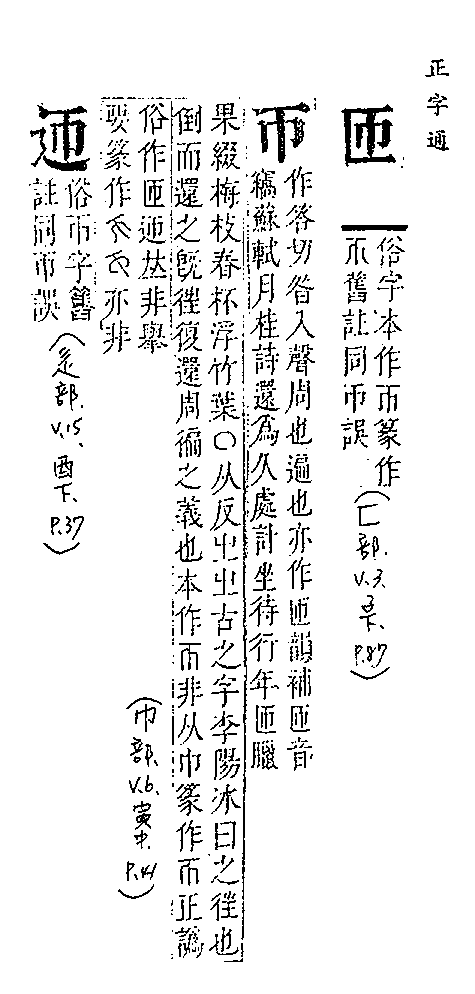 正字通
匝
俗字本作帀篆作
舊註同帀誤
(匸部. V.3. 子下. P.87)
帀
作答切咎入聲周也遍也亦作匝韻補匝音
竊蘇軾月桂詩還爲久處計坐待行年匝臘
果綴梅枝春杯浮竹葉〇从反㞢㞢古之字李陽冰曰之徃也
倒而還之旣徃復還周徧之義也本作帀非从巾篆作帀正譌
俗作匝迊𠀤非舉
要篆作亦非
(巾部. V.6. 寅中. P.41)
迊
俗帀字舊
註同帀誤
(辵部. V.15. 酉下. P.37)